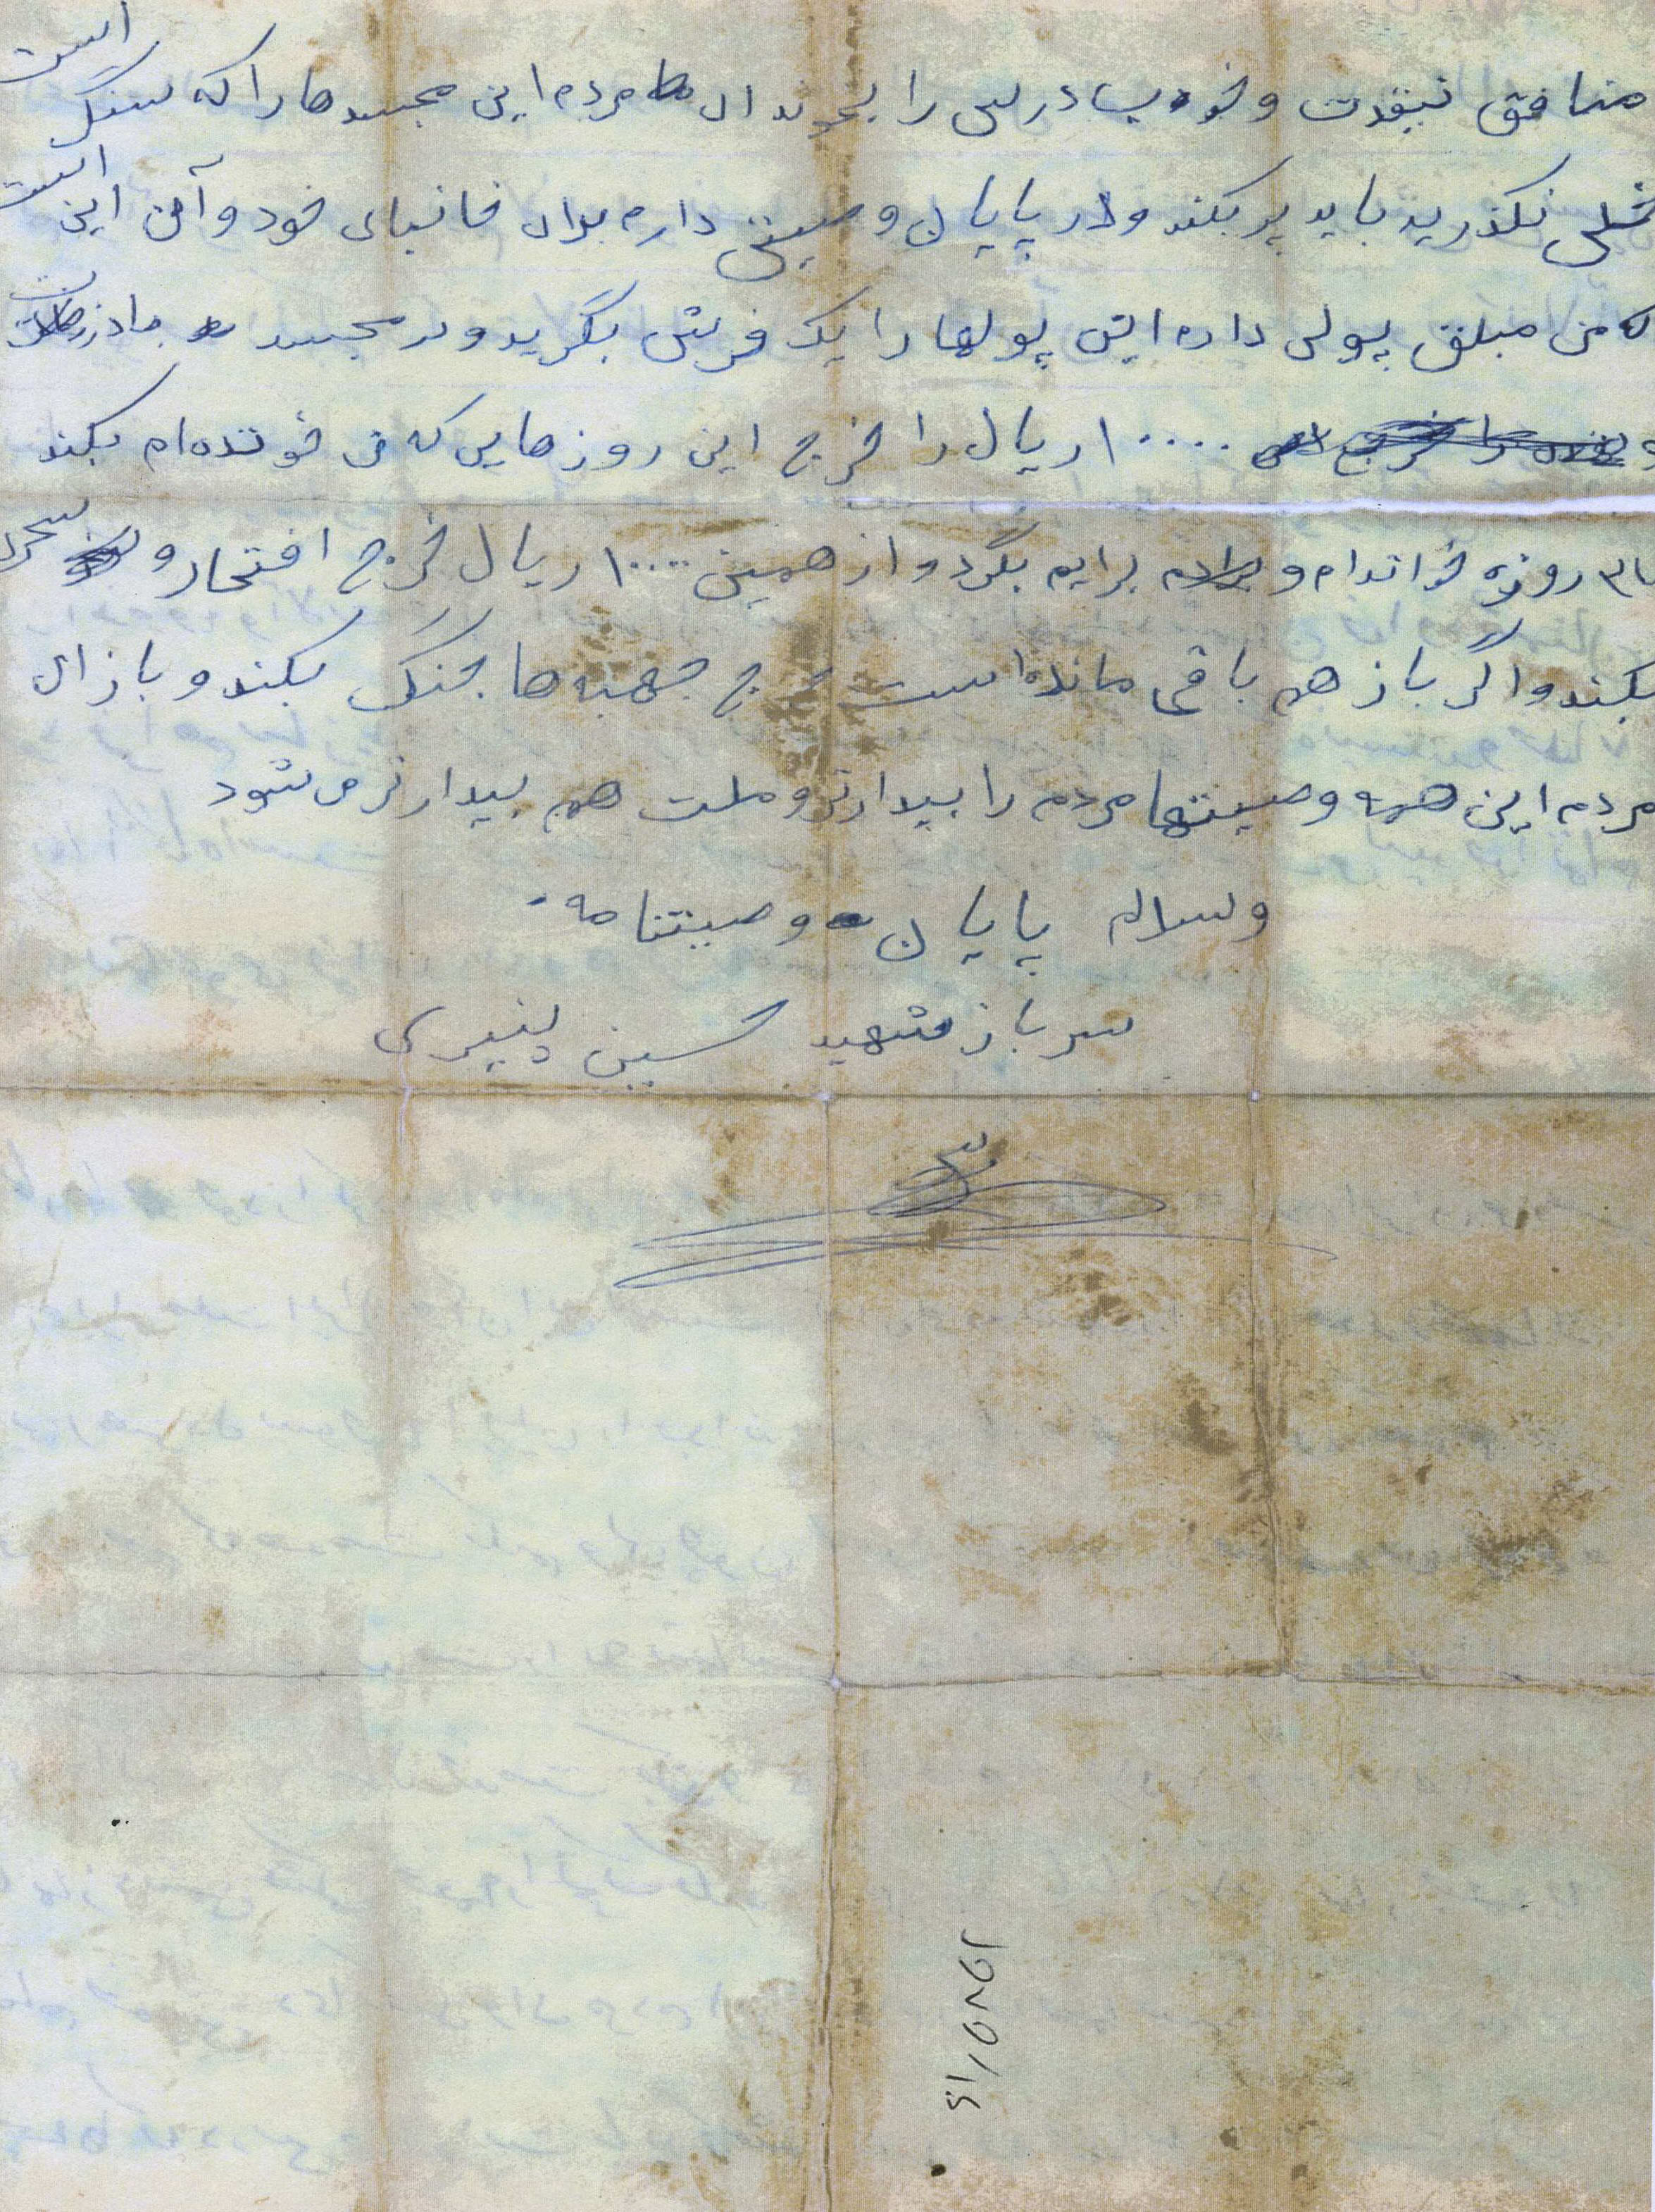 منافق نیفدت و خوب درسی را بخوند ای مردم این مجسدها را که سنگر است
نگذرید باید پر بکند و در پایان وصیتی دارم برای خانبای خود و آن این است
که من مبلق پولی دارم این پولها را یک فرش بگرید و در مجسد بیاندازید
و ۱۰۰۰۰ ریال را خرج این روزهایی که من خوندهام بکند
روزه خواندام و برایم بگرد و از همین ۱۰۰۰۰ ریال خرج افتحار و سحر
بکند و اگر باز هم باقی مانده است خرج جبهه ها جنگ بکند و باز ای
مردم این همه وصیتها مردم را بیدارتر و ملت هم بیدارتر می شود
وسلام پایان وصیتنامه
سرباز شهید حسین پنیری
۳